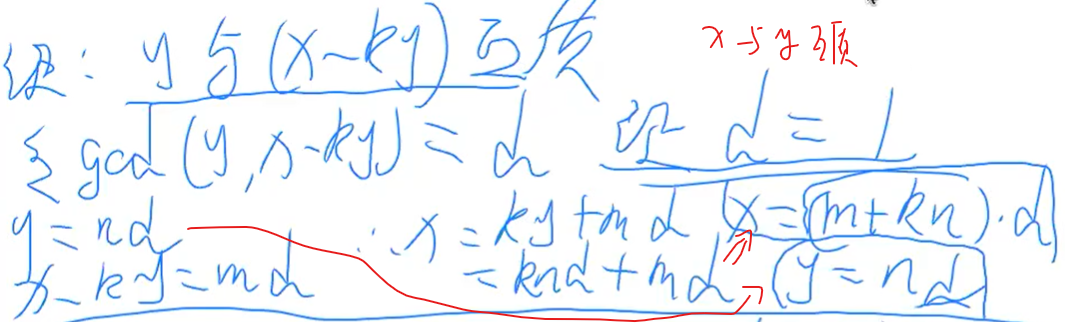 证: y与(x-ky)互质
x与y互质
令gcd(y,x-ky)=d 证 d=1
y=nd ∴x=ky+md x=(m+kn)·d
x-ky=md =knd+md y=nd